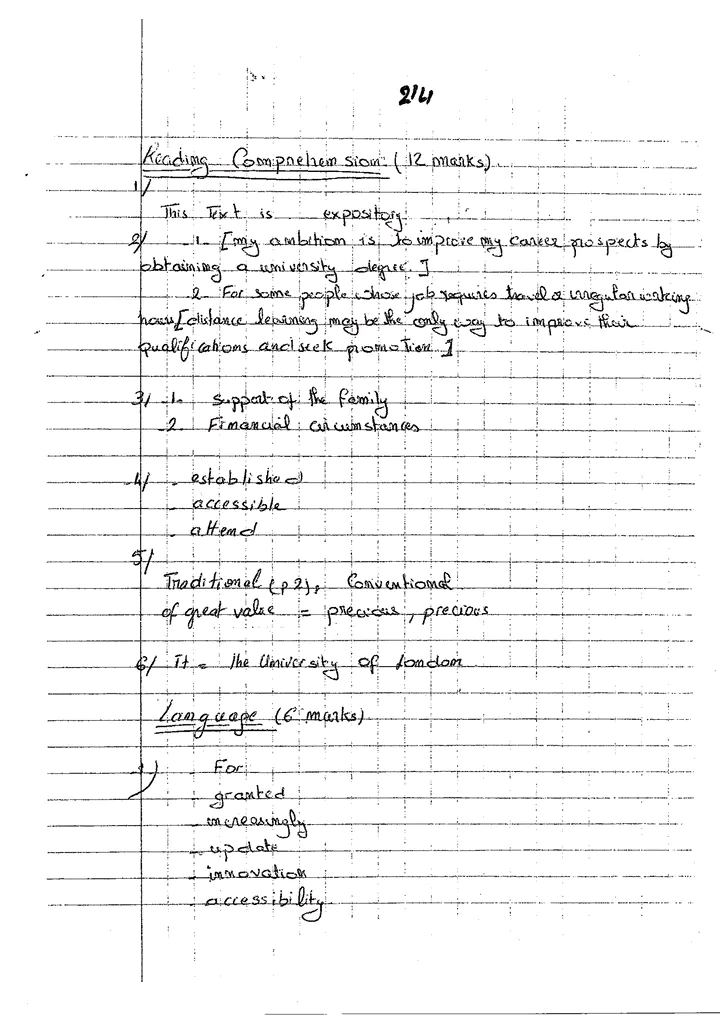 2/4
Reading Comprehension (12 marks)
1/
This Text is expository.
2/ 1. [my ambition is to improve my career prospects by
obtaining a university degree.]
2. For some people whose job requires travel or irregular working
hours [distance learning may be the only way to improve their
qualifications and seek promotion.]
3/ 1. support of the family
2. Financial circumstances
4/ - established
- accessible
- attend
5/
Traditional (p2), Conventional
of great value = precious, precious
6/ It = the University of London
Language (6 marks)
1) For
- granted
- increasingly
- update
- innovation
- accessibility